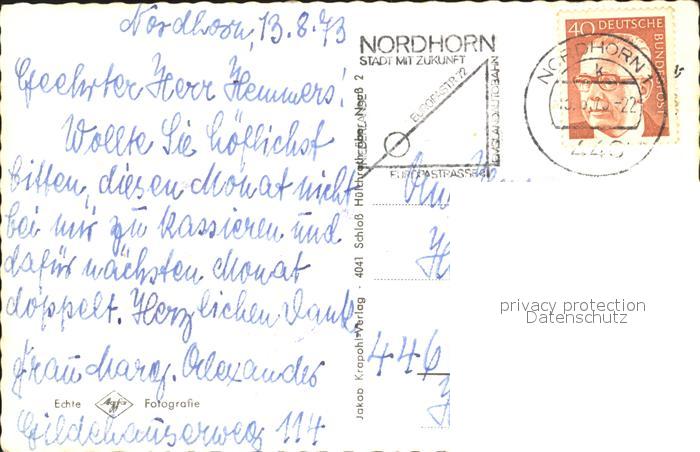 Nordhorn, 13.8.73
Geehrter Herr Hemmers!
Wollte Sie höflichst
bitten, diesen Monat nicht
bei mir zu kassieren und
dafür nächsten Monat
doppelt. Herzlichen Dank
Frau Marg. Alexandes
Gildehauserweg 114
Echte Agfa Fotografie
Jakob Krapohl-Verlag · 4041 Schloß Hülchrath über Neuß 2
NORDHORN
STADT MIT ZUKUNFT
EUROPASTR. 72
NIEDERLANDE
EMSLANDAUTOBAHN
EUROPASTRASSE 8
40 DEUTSCHE BUNDESPOST
NORDHORN 1
k
-22
An
H
446
privacy protection
Datenschutz